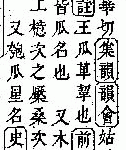 華切集韻韻會姑
註王瓜草挈也前
瓜名也又木
上橙次之櫱桑次
又匏瓜星名史